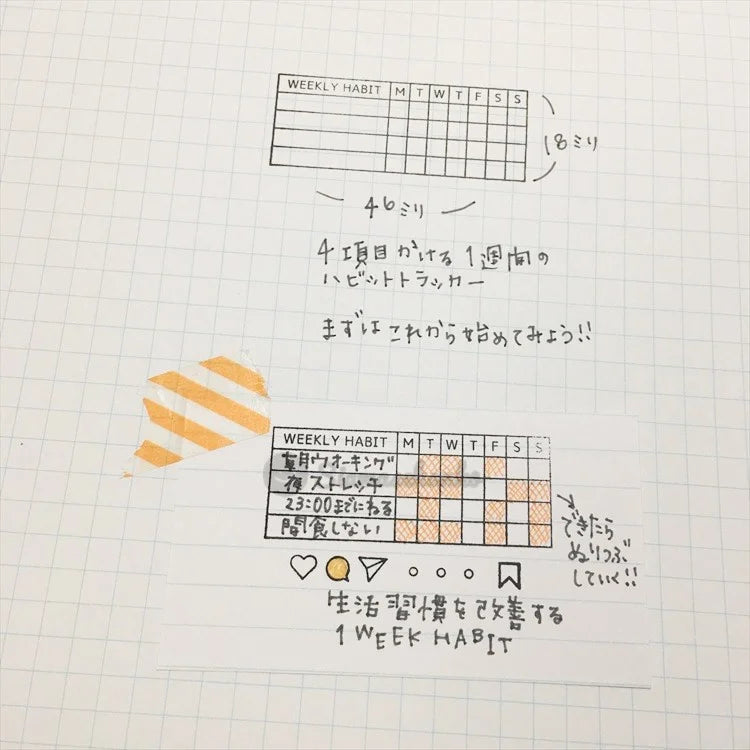 WEEKLY HABIT M T W T F S S
18ミリ
46ミリ
4項目かける1週間の
ハビットトラッカー
まずはこれから始めてみよう!!
WEEKLY HABIT M T W T F S S
朝ウオーキング
夜ストレッチ
23:00までにねる
間食しない
できたら
ぬりつぶ
していく!!
生活習慣を改善する
1 WEEK HABIT